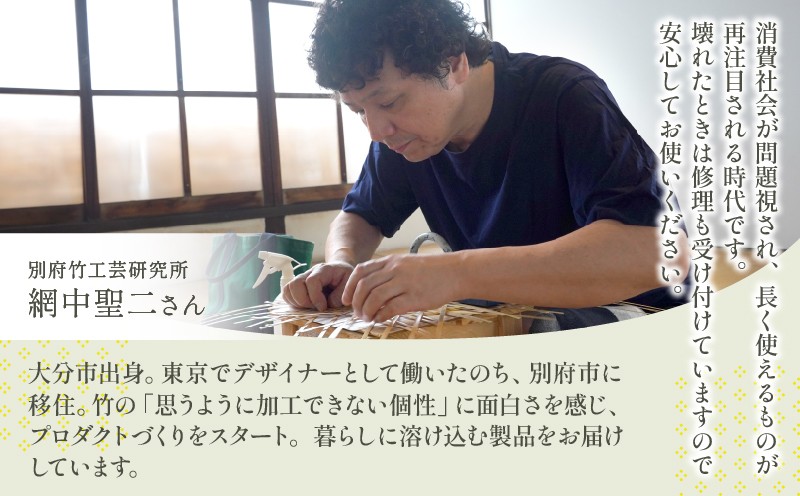 消費社会が問題視され、長く使えるものが
再注目される時代です。
壊れたときは修理も受け付けていますので
安心してお使いください。
別府竹工芸研究所
網中聖二さん
大分市出身。東京でデザイナーとして働いたのち、別府市に
移住。竹の「思うように加工できない個性」に面白さを感じ、
プロダクトづくりをスタート。暮らしに溶け込む製品をお届け
しています。